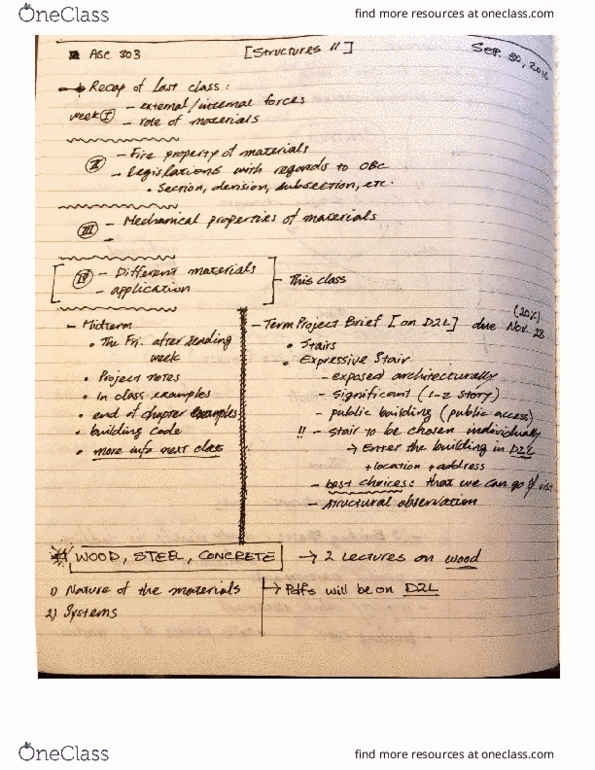 OneClass
find more resources at oneclass.com
ASC 303 [Structures II] Sep. 30, 2016
→ Recap of last class:
week I – external/internal forces
– role of materials
II – Fire property of materials
– Legislations with regards to OBC
• Section, division, subsection, etc.
III – Mechanical properties of materials
–
IV – Different materials
– application
– This class
– Midterm
• The Fri. after reading
week
• Project notes
• In class examples
• end of chapter examples
• building code
• more info next class
– Term Project Brief [on D2L] due Nov. 28 (20%)
• Stairs
• Expressive Stair
– exposed architecturally
– significant (1-2 story)
– public building (public access)
!! – Stair to be chosen individually
→ Enter the building in D2L
+ location + address
– best choices: that we can go & visit
– structural observation
WOOD, STEEL, CONCRETE → 2 Lectures on wood
1) Nature of the materials
2) Systems
→ Pdfs will be on D2L
OneClass
find more resources at oneclass.com